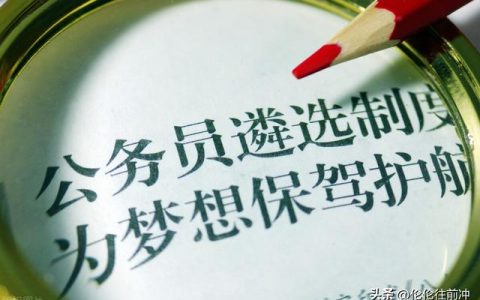 公务员遴选制度
为梦想保驾护航
头条 @伦伦往前冲